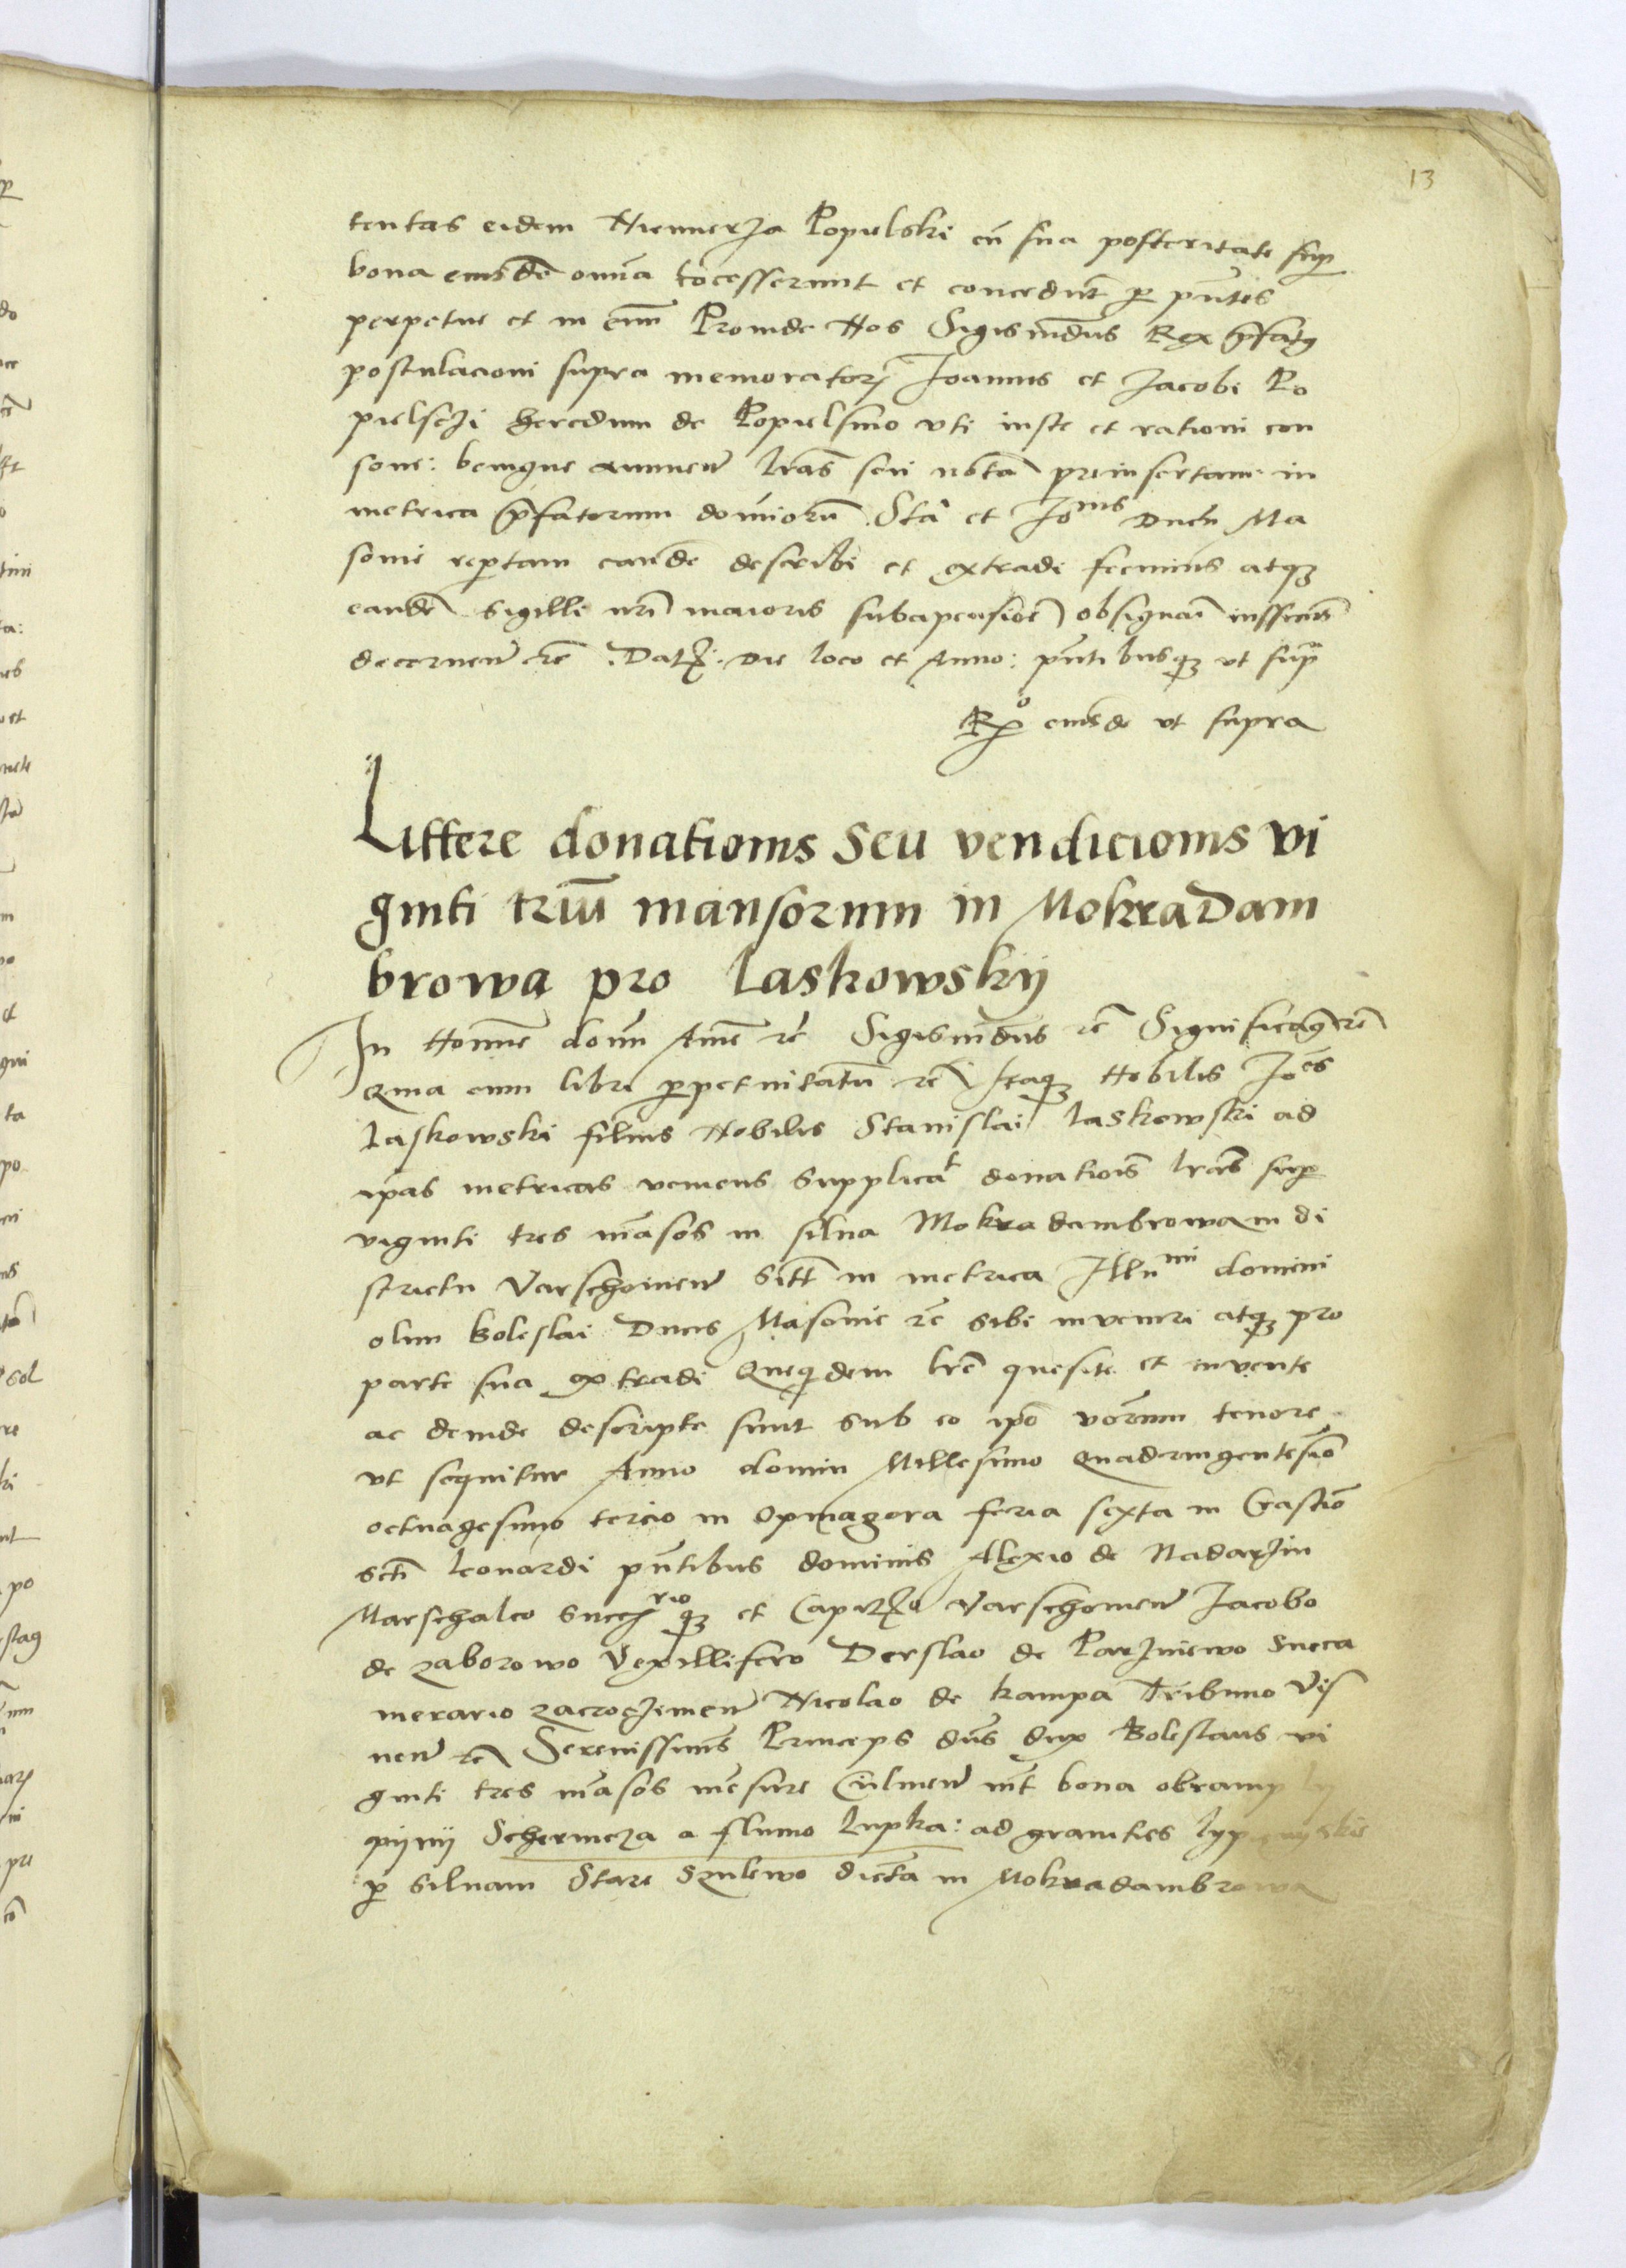 13
tentas eidem Niemierza Popielski cũ sua posteritate sup
bona eiusdẽ omĩa cõcesserunt et concedũt p pñtes
perpetue et in euũ Proinde Nos Sigismũdus Rex p̃fatq
postulacioni supra memoratorz Joannis et Jacobi Po
pielsczi heredum de Popielsino vti iuste et rationi con
sone: benigne annuen lr̃as seu notã preinsertam in
metrica p̃fatorum dominorũ Sta et Jonis Ducũ Ma
souie reptam eandẽ describi et extradi fecimus atqz
eandẽ sigilli nr̃i maioris subapensiõe obsignari iussim̃s
decernen rẽ. Datz. die loco et Anno: pñtibusqz vt supa
Ro eiusdẽ vt supra
Littere donationis seu vendicionis vi
ginti triũ mansorum in Mokradam
browa pro Laskowskij
In Nomĩe domĩ Amẽ rẽ Sigismũdus rẽ Significamq rẽ
Quia cum libri ppetuitatũ rẽ Itaqz Nobilis Joẽs
Laskowski filius Nobilis Stanislai Laskowski ad
ipas metricas veniens supplicat donatiõis lr̃as sup
viginti tres mãsos in silua Mokradambrowa in di
strictu Varschouien sitt in metrica Illumi domini
olim Boleslai Ducis Masouie rẽ sibi inueniri atqz pro
parte sua extradi Quequidem lr̃e quesite et invente
ac deinde descripte sunt sub eo ipo verorum tenore
vt sequitur Anno domini Millesimo Quadringentesiõ
octuagesimo tercio in Opinagora feria sexta in Crastiõ
scti Leonardi pñtibus dominis Alexio de Nadarzin
Marschalco succzrioqz et Capitzo Varschouien Jacobo
de Zaborowo Vexillifero Derslao de Parzniewo Succa
merario Zacroczimen Nicolao de Kampa Tribuno Vis
nen rẽ Serenissimus Princeps dñs dux Boleslaus vi
ginti tres mãsos mẽsure Culmen int bona obramp
Schermcza a flumo Lupka: ad granities
p siluam Stare Szulewo dictã in Mokradambrowa